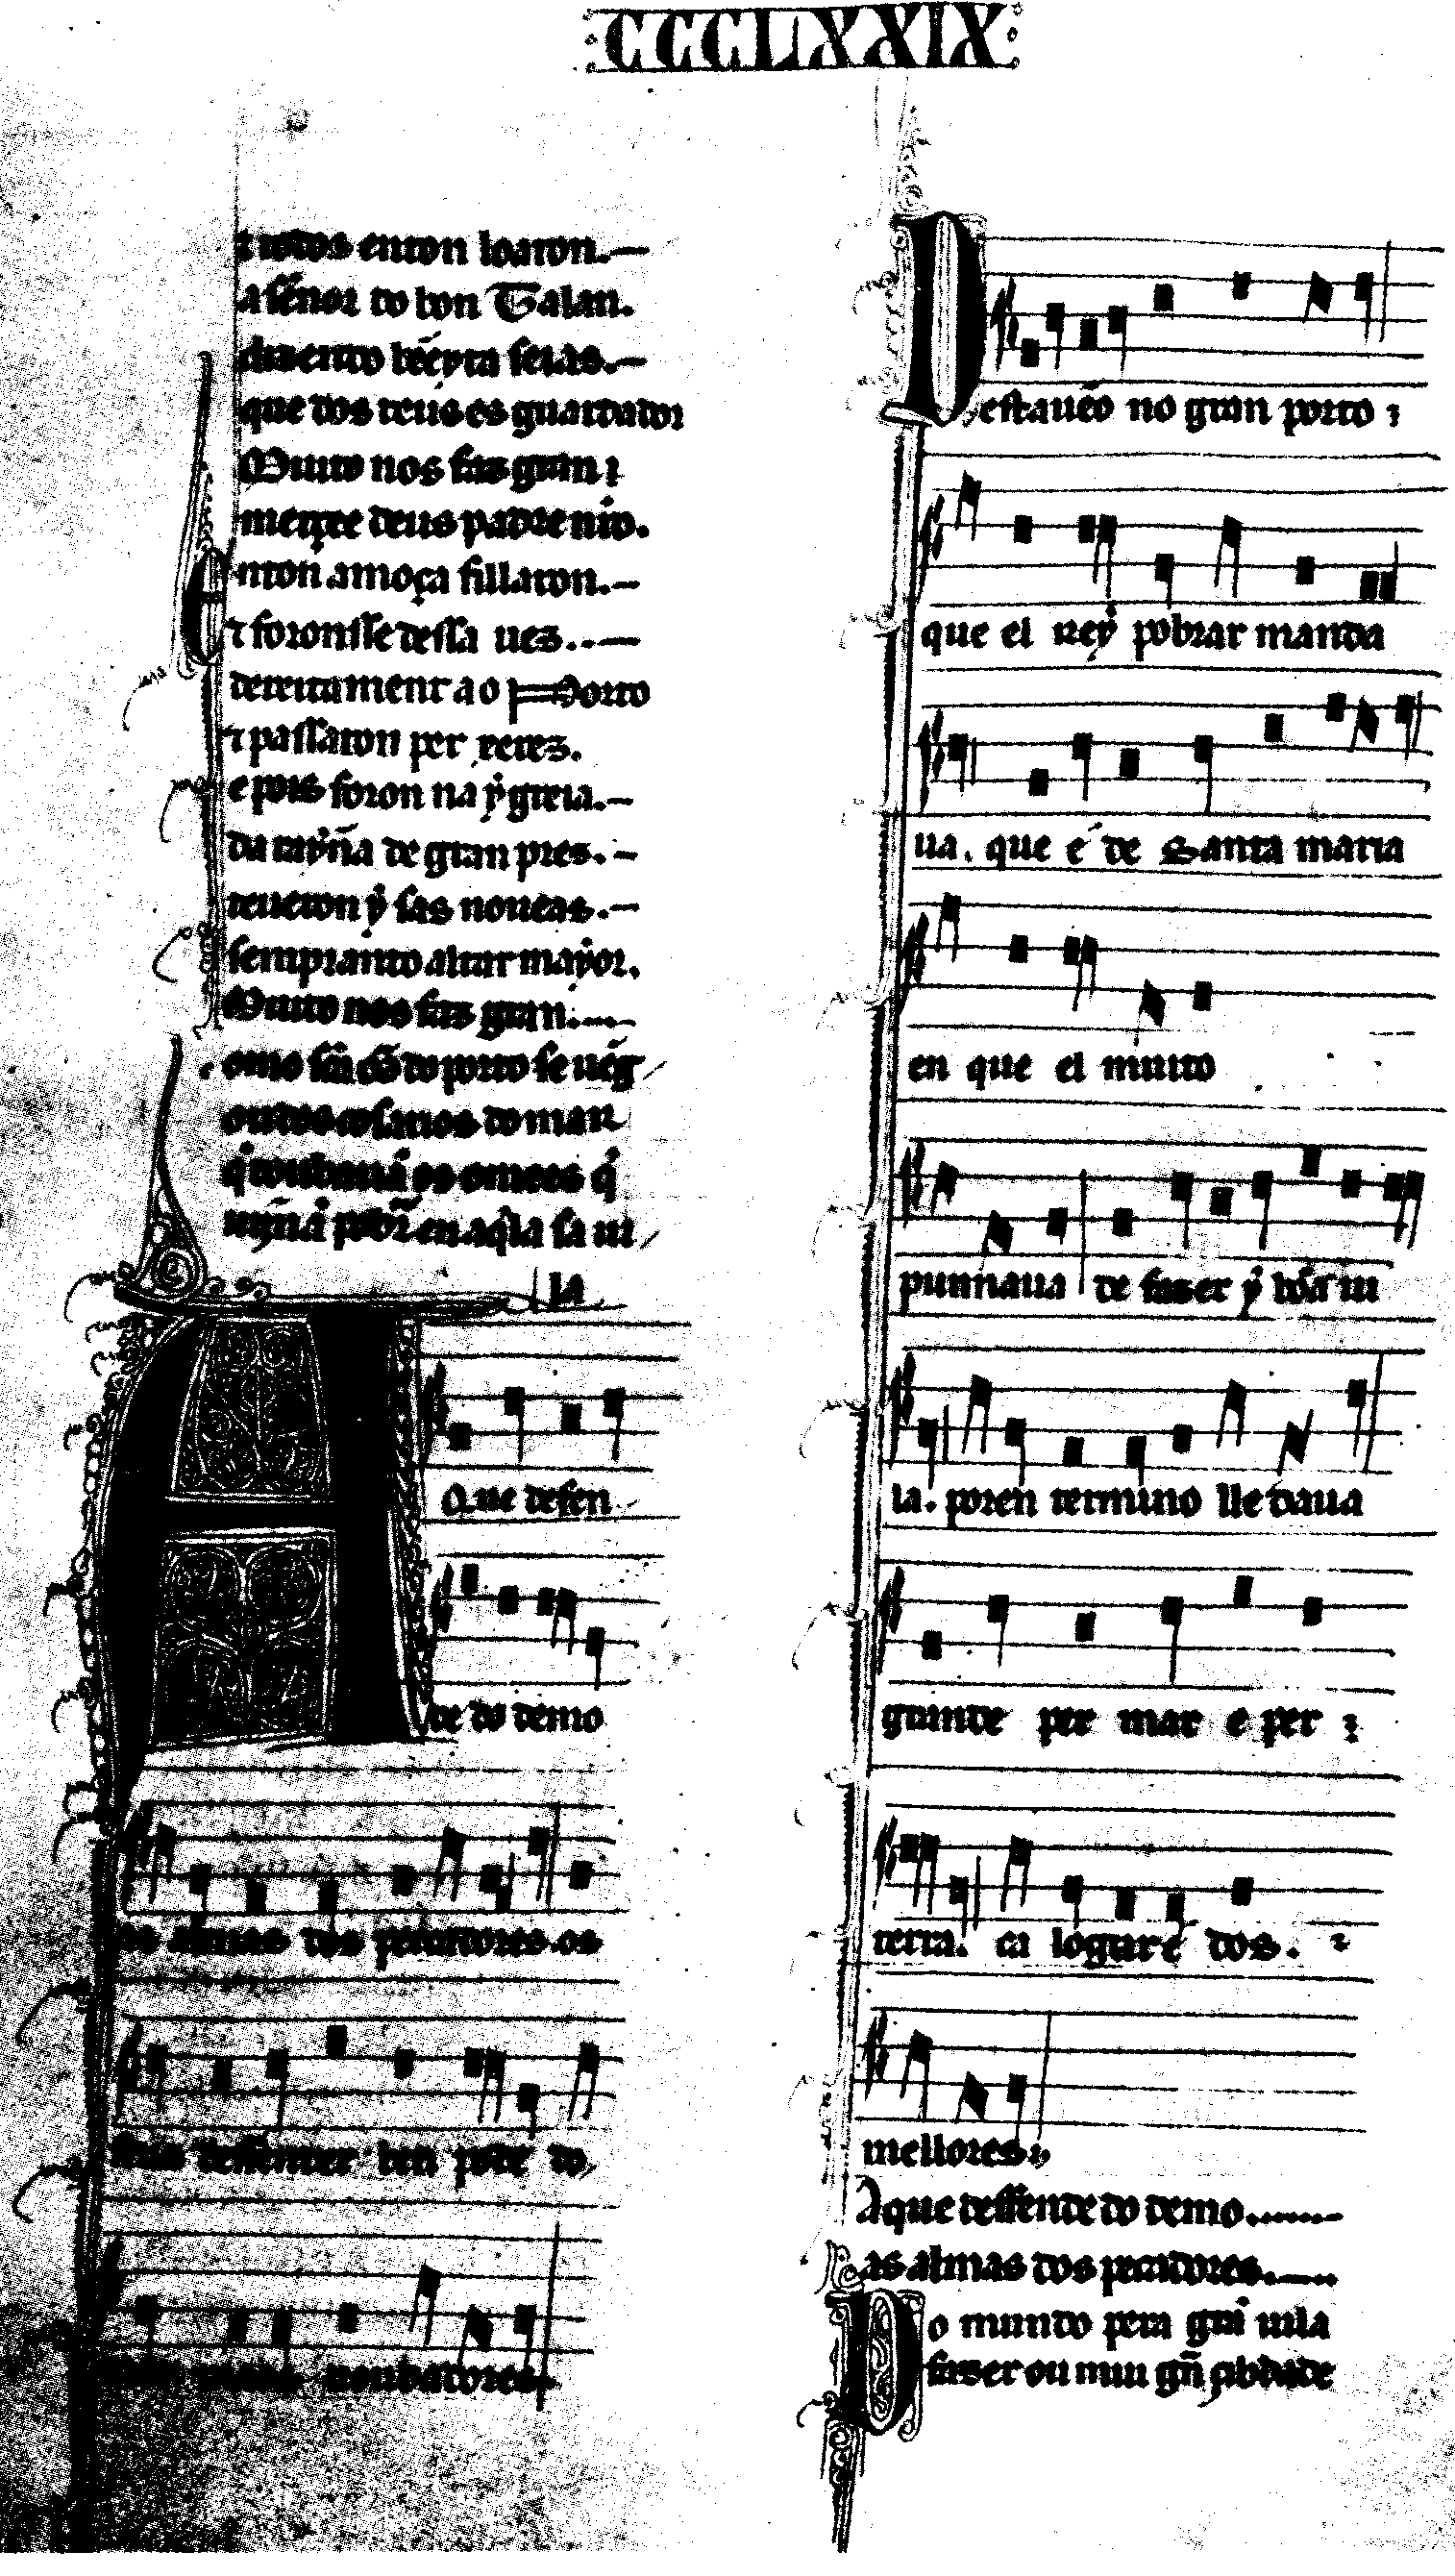 CCCLXXIX
⁊ todos enton loaron.—
a sẽnor do bon Talan.
que dos teus es guardador
Muito nos faz gran ⁊
enton a moça fillaron.—
⁊ foronsse dessa uez..—
dereitament a o Porto
⁊ passaron per xerez.
e pois foron na ygreia.—
da reyña de gran prez.—
teueron y sas nouẽas.—
sempranto altar mayor.
Muito nos faz gran.—
omo sc̃a Mã do porto se uẽg
ou dos cosarios do mar
q̇ roubauã os omees q̇
uỹnã pobrar en aq̇la sa ui
la
A Que defen
de do demo
as almas dos pecadores. os
seus deffender ben pode do
roubadores.
Desto auẽo no gran porto ⁊
que el Rey pobrar manda
ua. que é de Santa maria
en que el muito
punnaua de fazer y bõa ui
la. poren termino lle daua
grande per mar e per ⁊
terra. ca logar é dos. ⁊
mellores
A que deffende do demo......
as almas dos pecadores.—
Do mundo pera grã uila
fazer ou mui grã çibdade